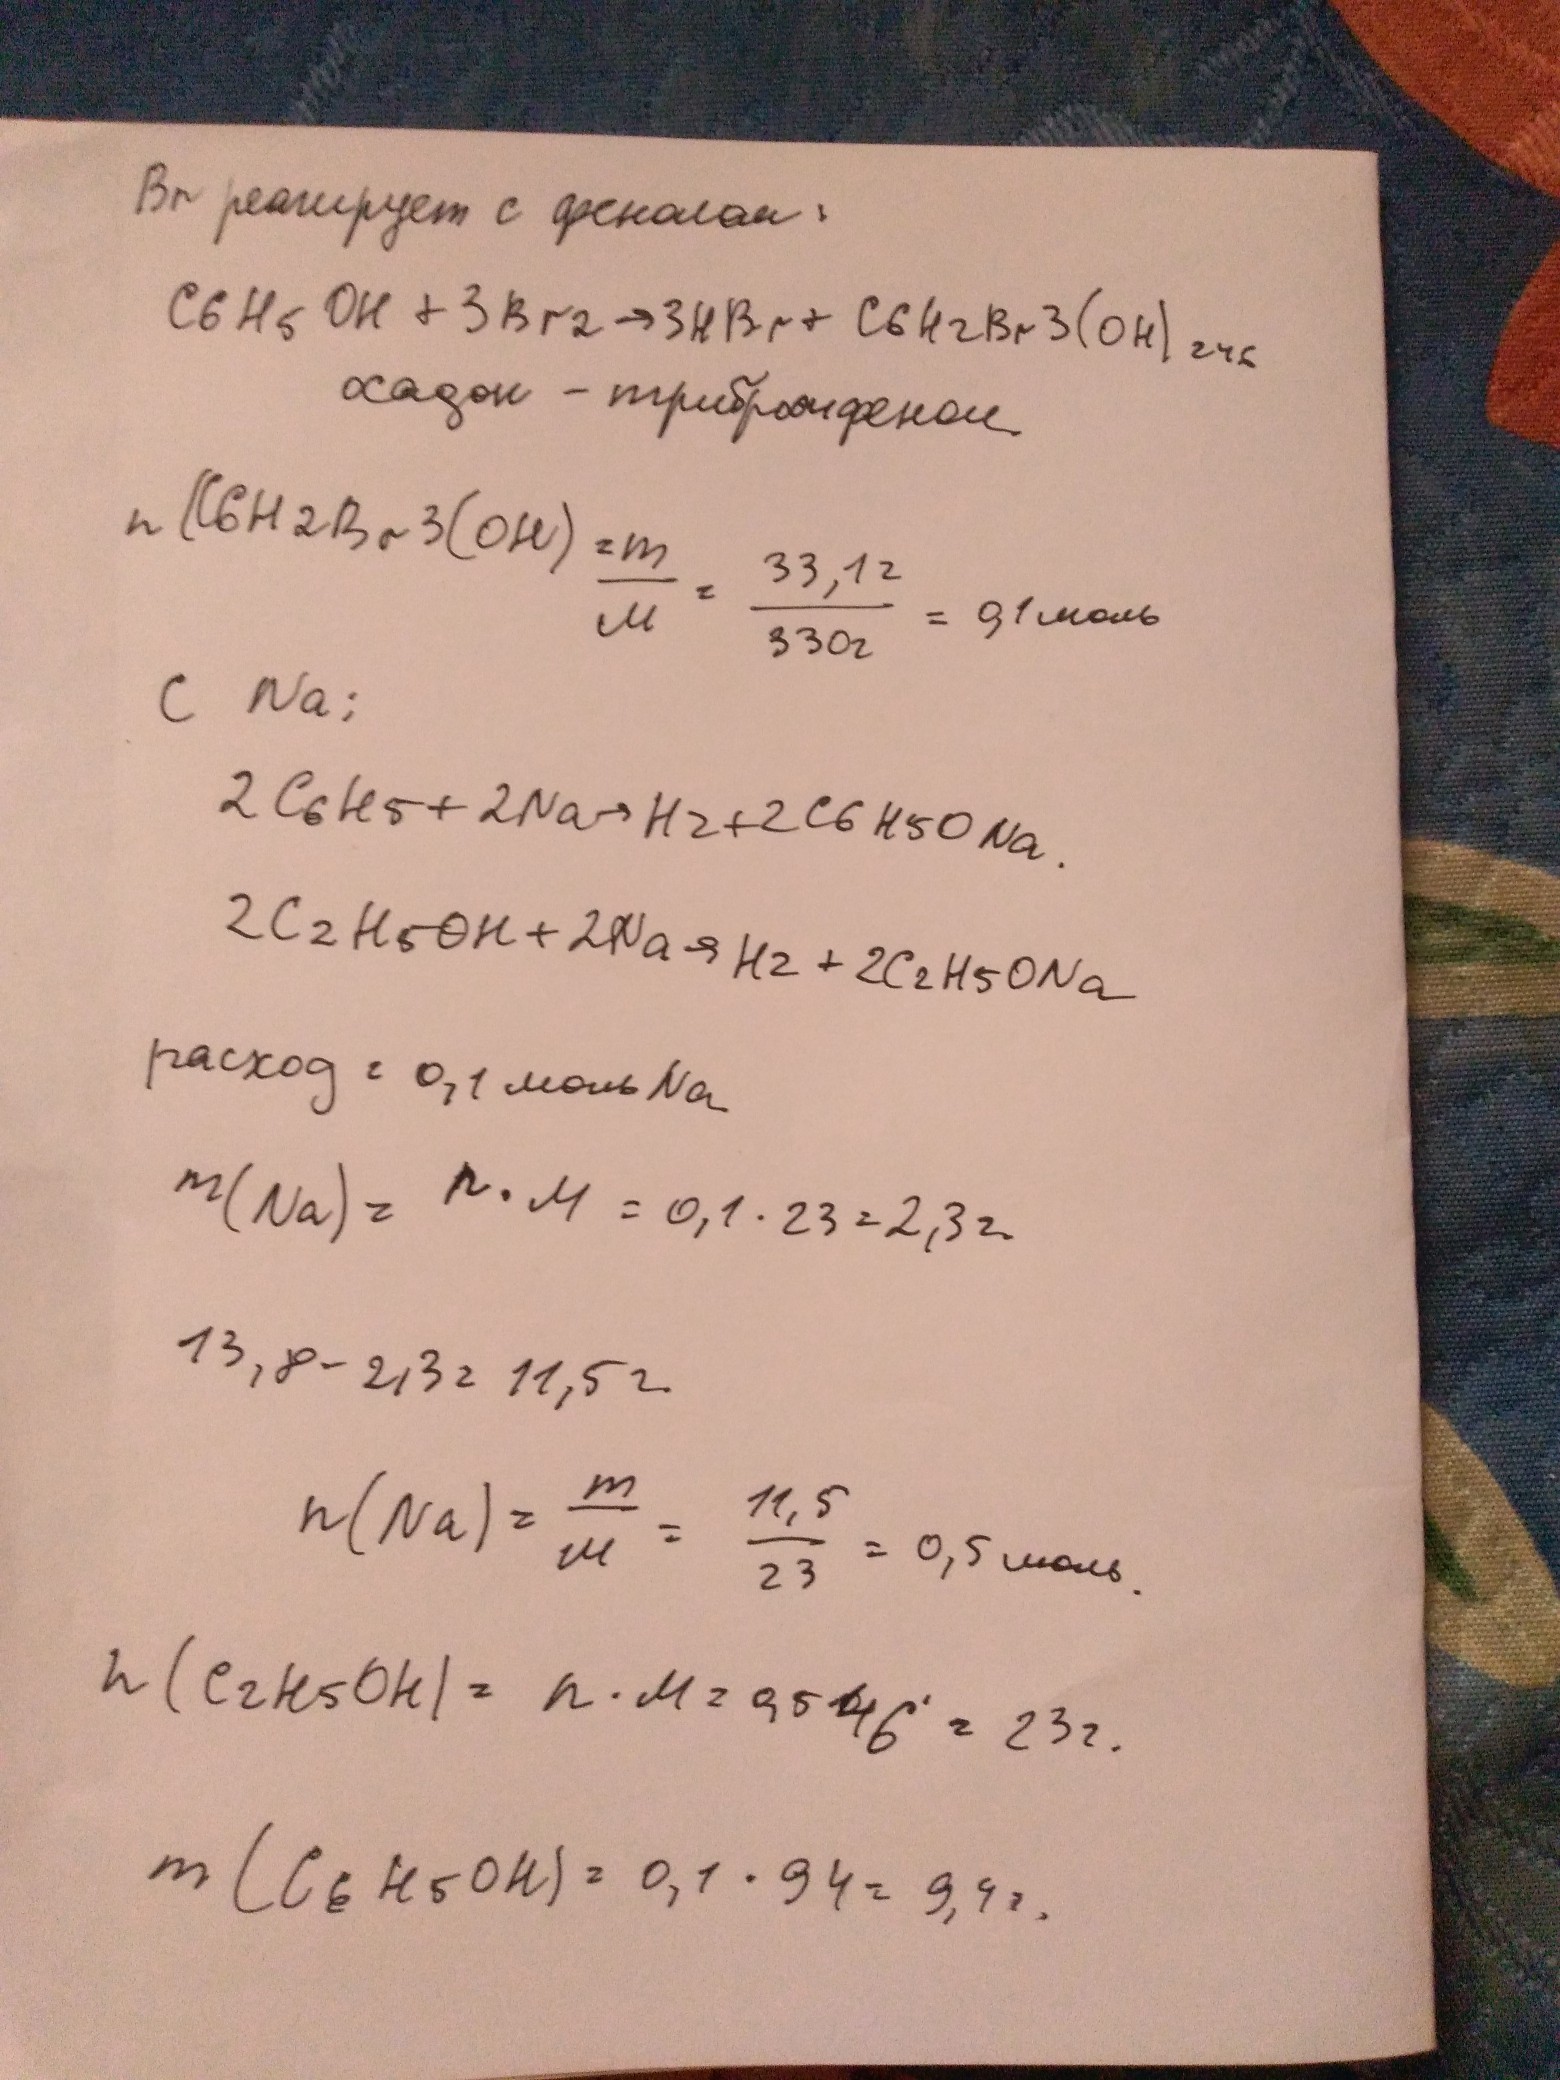 Br реагирует с фенолом:
C6H5OH + 3Br2 → 3HBr + C6H2Br3(OH) 246
осадок - трибромфенол
n (C6H2Br3(OH) = m/M = 33,1г/330г = 0,1 моль
С Na:
2C6H5 + 2Na → H2 + 2C6H5ONa.
2C2H5OH + 2Na → H2 + 2C2H5ONa
расход = 0,1 моль Na
m(Na) = n · M = 0,1 · 23 = 2,3г.
13,8 - 2,3 = 11,5г.
n(Na) = m/M = 11,5/23 = 0,5 моль.
n(C2H5OH) = n · M = 0,5 46 = 23г.
m(C6H5OH) = 0,1 · 94 = 9,4г.